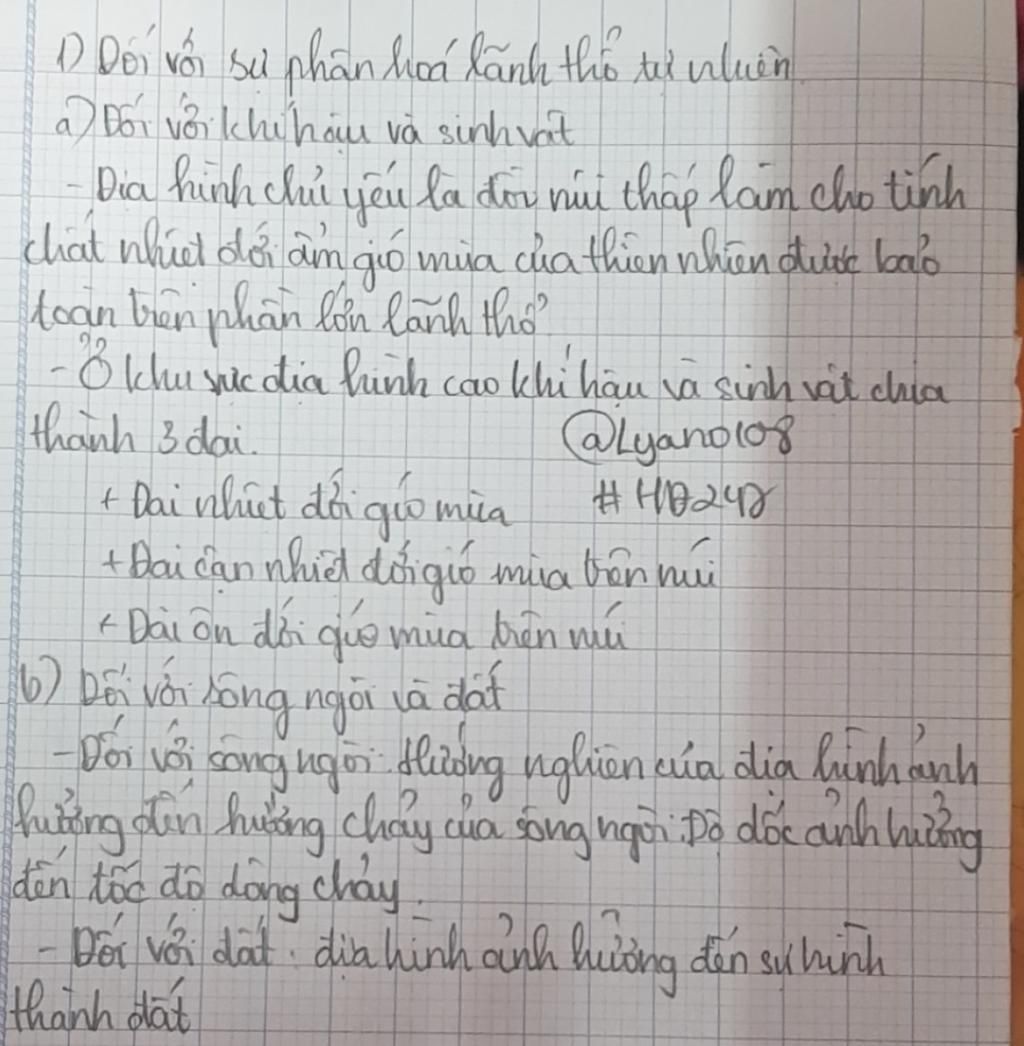 1) Đối với sự phân hoá lãnh thổ tự nhiên
a) Đối với khí hậu và sinh vật
- Địa hình chủ yếu là đồi núi thấp làm cho tính
chất nhiệt đới ẩm gió mùa của thiên nhiên được bảo
toàn trên phần lớn lãnh thổ
- Ở khu vực địa hình cao khí hậu và sinh vật chia
thành 3 đai. @Lyano108
+ Đai nhiệt đới gió mùa #HD242
+ Đai cận nhiệt đới gió mùa trên núi
+ Đai ôn đới gió mùa trên núi
b) Đối với sông ngòi và đất
- Đối với sông ngòi: Hướng nghiên của địa hình ảnh
hưởng đến hướng chảy của sông ngòi. Độ dốc ảnh hưởng
đến tốc độ dòng chảy.
- Đối với đất: địa hình ảnh hưởng đến sự hình
thành đất